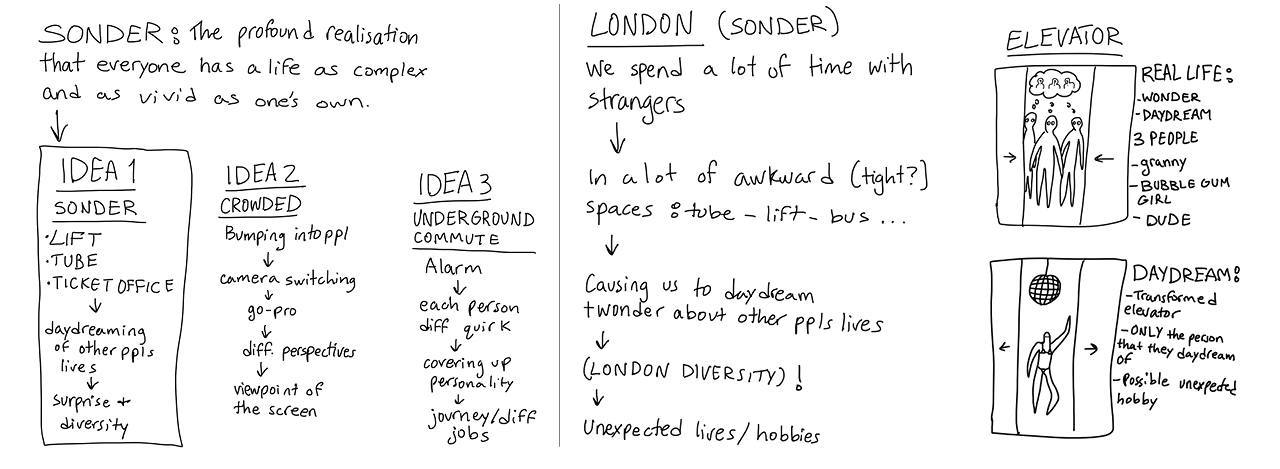 SONDER: The profound realisation
that everyone has a life as complex
and as vivid as one's own.
IDEA 1
SONDER
·LIFT
·TUBE
·TICKET OFFICE
daydreaming
of other ppls
lives
surprise +
diversity
IDEA 2
CROWDED
Bumping into ppl
camera switching
go-pro
diff. perspectives
viewpoint of
the screen
IDEA 3
UNDERGROUND
COMMUTE
Alarm
each person
diff quirk
covering up
personality
journey/diff
jobs
LONDON (SONDER)
We spend a lot of time with
strangers
In a lot of awkward (tight?)
spaces : tube - lift - bus ...
Causing us to daydream
twonder about other ppls lives
(LONDON DIVERSITY)!
Unexpected lives/hobbies
ELEVATOR
REAL LIFE:
-WONDER
-DAYDREAM
3 PEOPLE
-granny
-BUBBLE GUM
GIRL
-DUDE
DAYDREAM:
-Transformed
elevator
-ONLY the person
that they daydream
of
-Possible unexpected
hobby